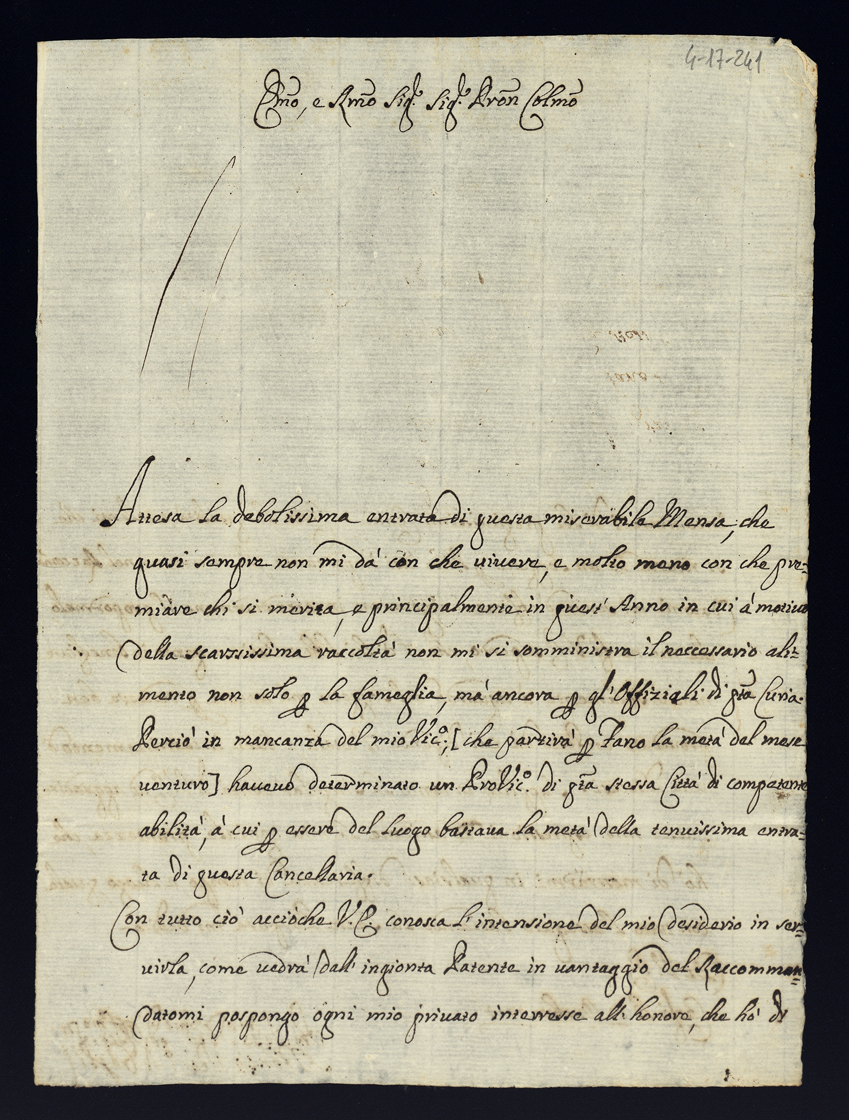 4-17-241
Emo, e Rmo Sigr. Sigr. Pron Colmo
Attesa la debolissima entrata di questa miserabile Mensa, che
quasi sempre non mi dà con che vivere, e molto meno con che pre=
miare chi si merita, e principalmente in quest' Anno in cui à motivo
della scarssissima raccolta non mi si somministra il neccessario ali=
mento non solo p la fameglia, mà ancora p gl' Offiziali di qta Curia.
Perciò in mancanza del mio Vico., [che partirà p Fano la metà del mese
venturo] havevo determinato un ProVico. di qta stessa Città di competente
abilità, à cui p essere del luogo bastava la metà della tenuissima entra=
ta di questa Cancellaria.
Con tutto ciò acciòche V. E. conosca l'intensione del mio desiderio in ser=
virla, come vedrà dall' ingionta Patente in vantaggio del Raccomman=
datomi pospongo ogni mio privato interresse all' honore, che hò di